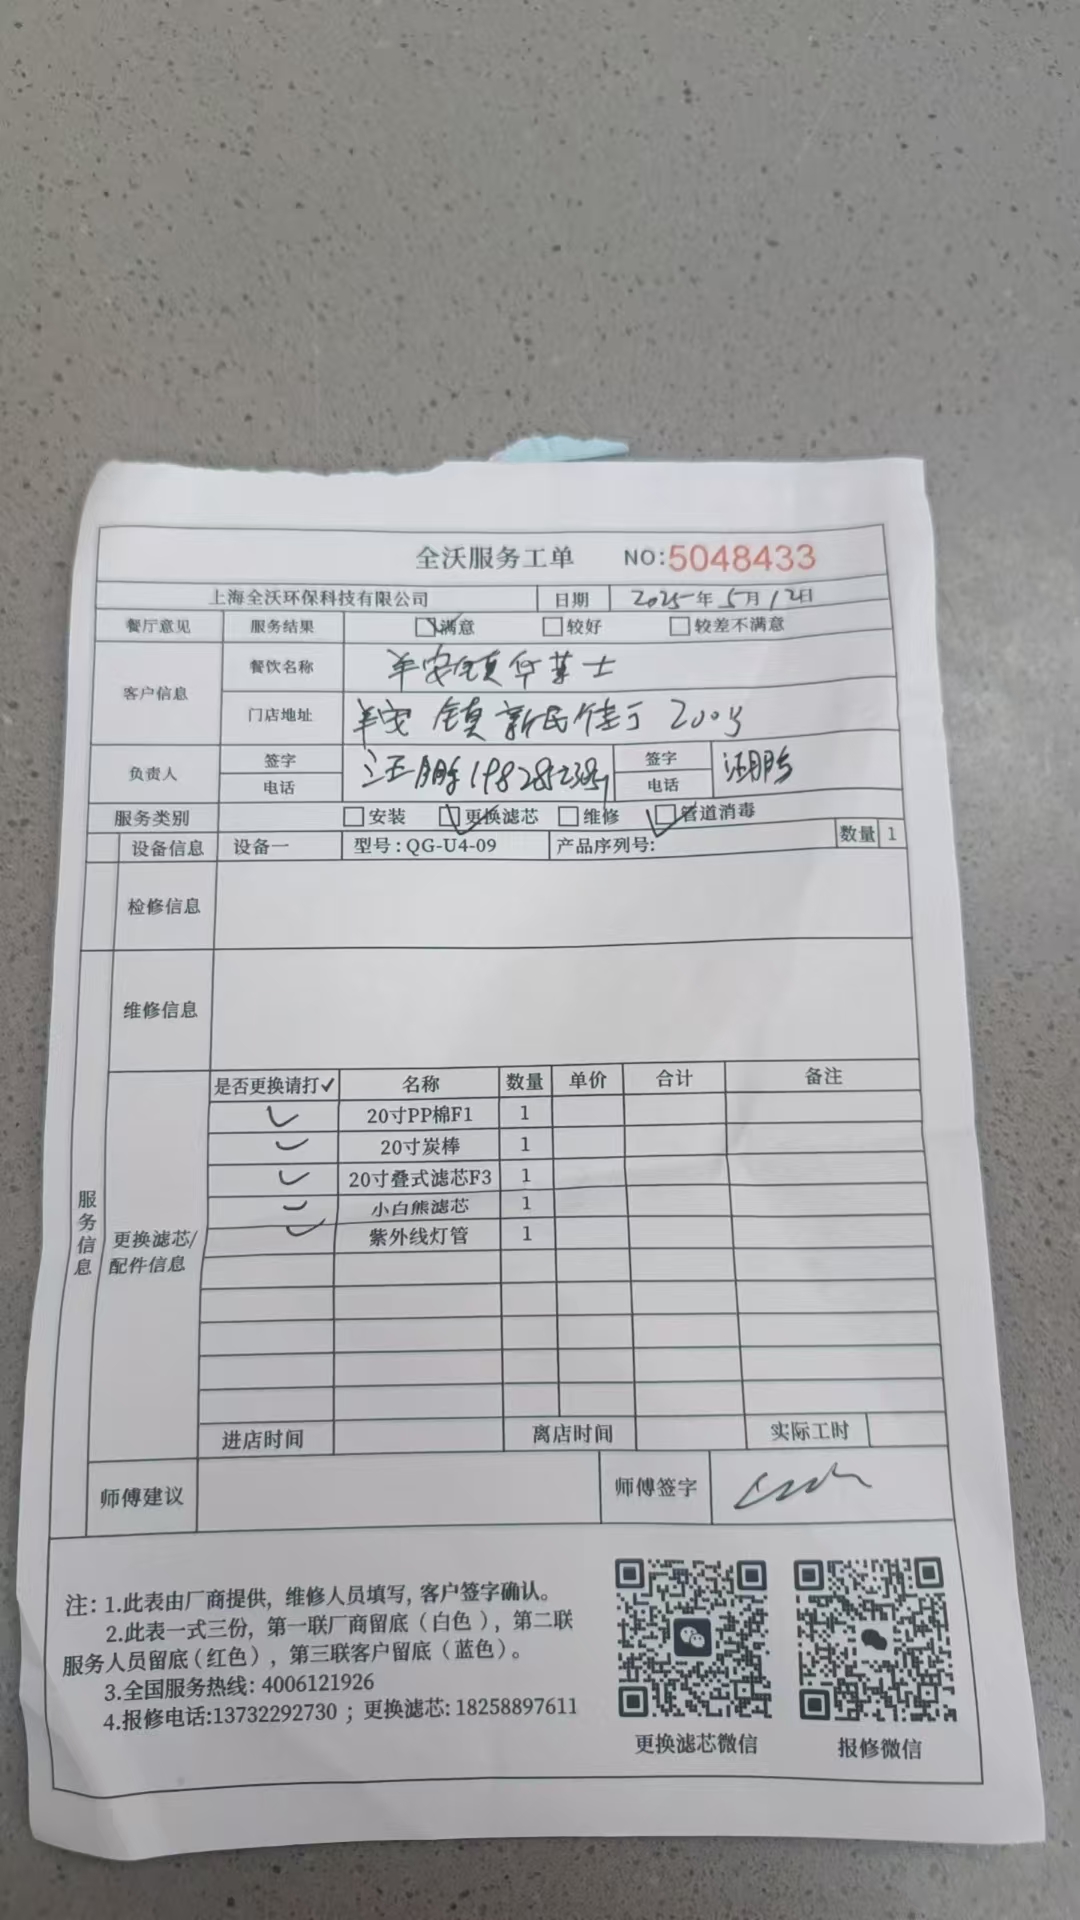 全沃服务工单 NO:5048433
上海全沃环保科技有限公司 日期 2025年5月12日
餐厅意见 服务结果 ☑满意 □较好 □较差不满意
客户信息 餐饮名称 羊安镇华莱士
门店地址 羊安镇新民佳于200号
负责人 签字 汪鹏 签字 汪鹏
电话 电话
服务类别 □安装 ☑更换滤芯 □维修 ☑管道消毒
设备信息 设备一 型号:QG-U4-09 产品序列号: 数量 1
检修信息
维修信息
服务信息
更换滤芯/配件信息
是否更换请打✓ 名称 数量 单价 合计 备注
✓ 20寸PP棉F1 1
✓ 20寸炭棒 1
✓ 20寸叠式滤芯F3 1
✓ 小白熊滤芯 1
✓ 紫外线灯管 1
进店时间 离店时间 实际工时
师傅建议 师傅签字
注: 1.此表由厂商提供, 维修人员填写, 客户签字确认。
2.此表一式三份, 第一联厂商留底(白色), 第二联
服务人员留底(红色), 第三联客户留底(蓝色)。
3.全国服务热线: 4006121926
4.报修电话:13732292730 ; 更换滤芯: 18258897611
更换滤芯微信 报修微信